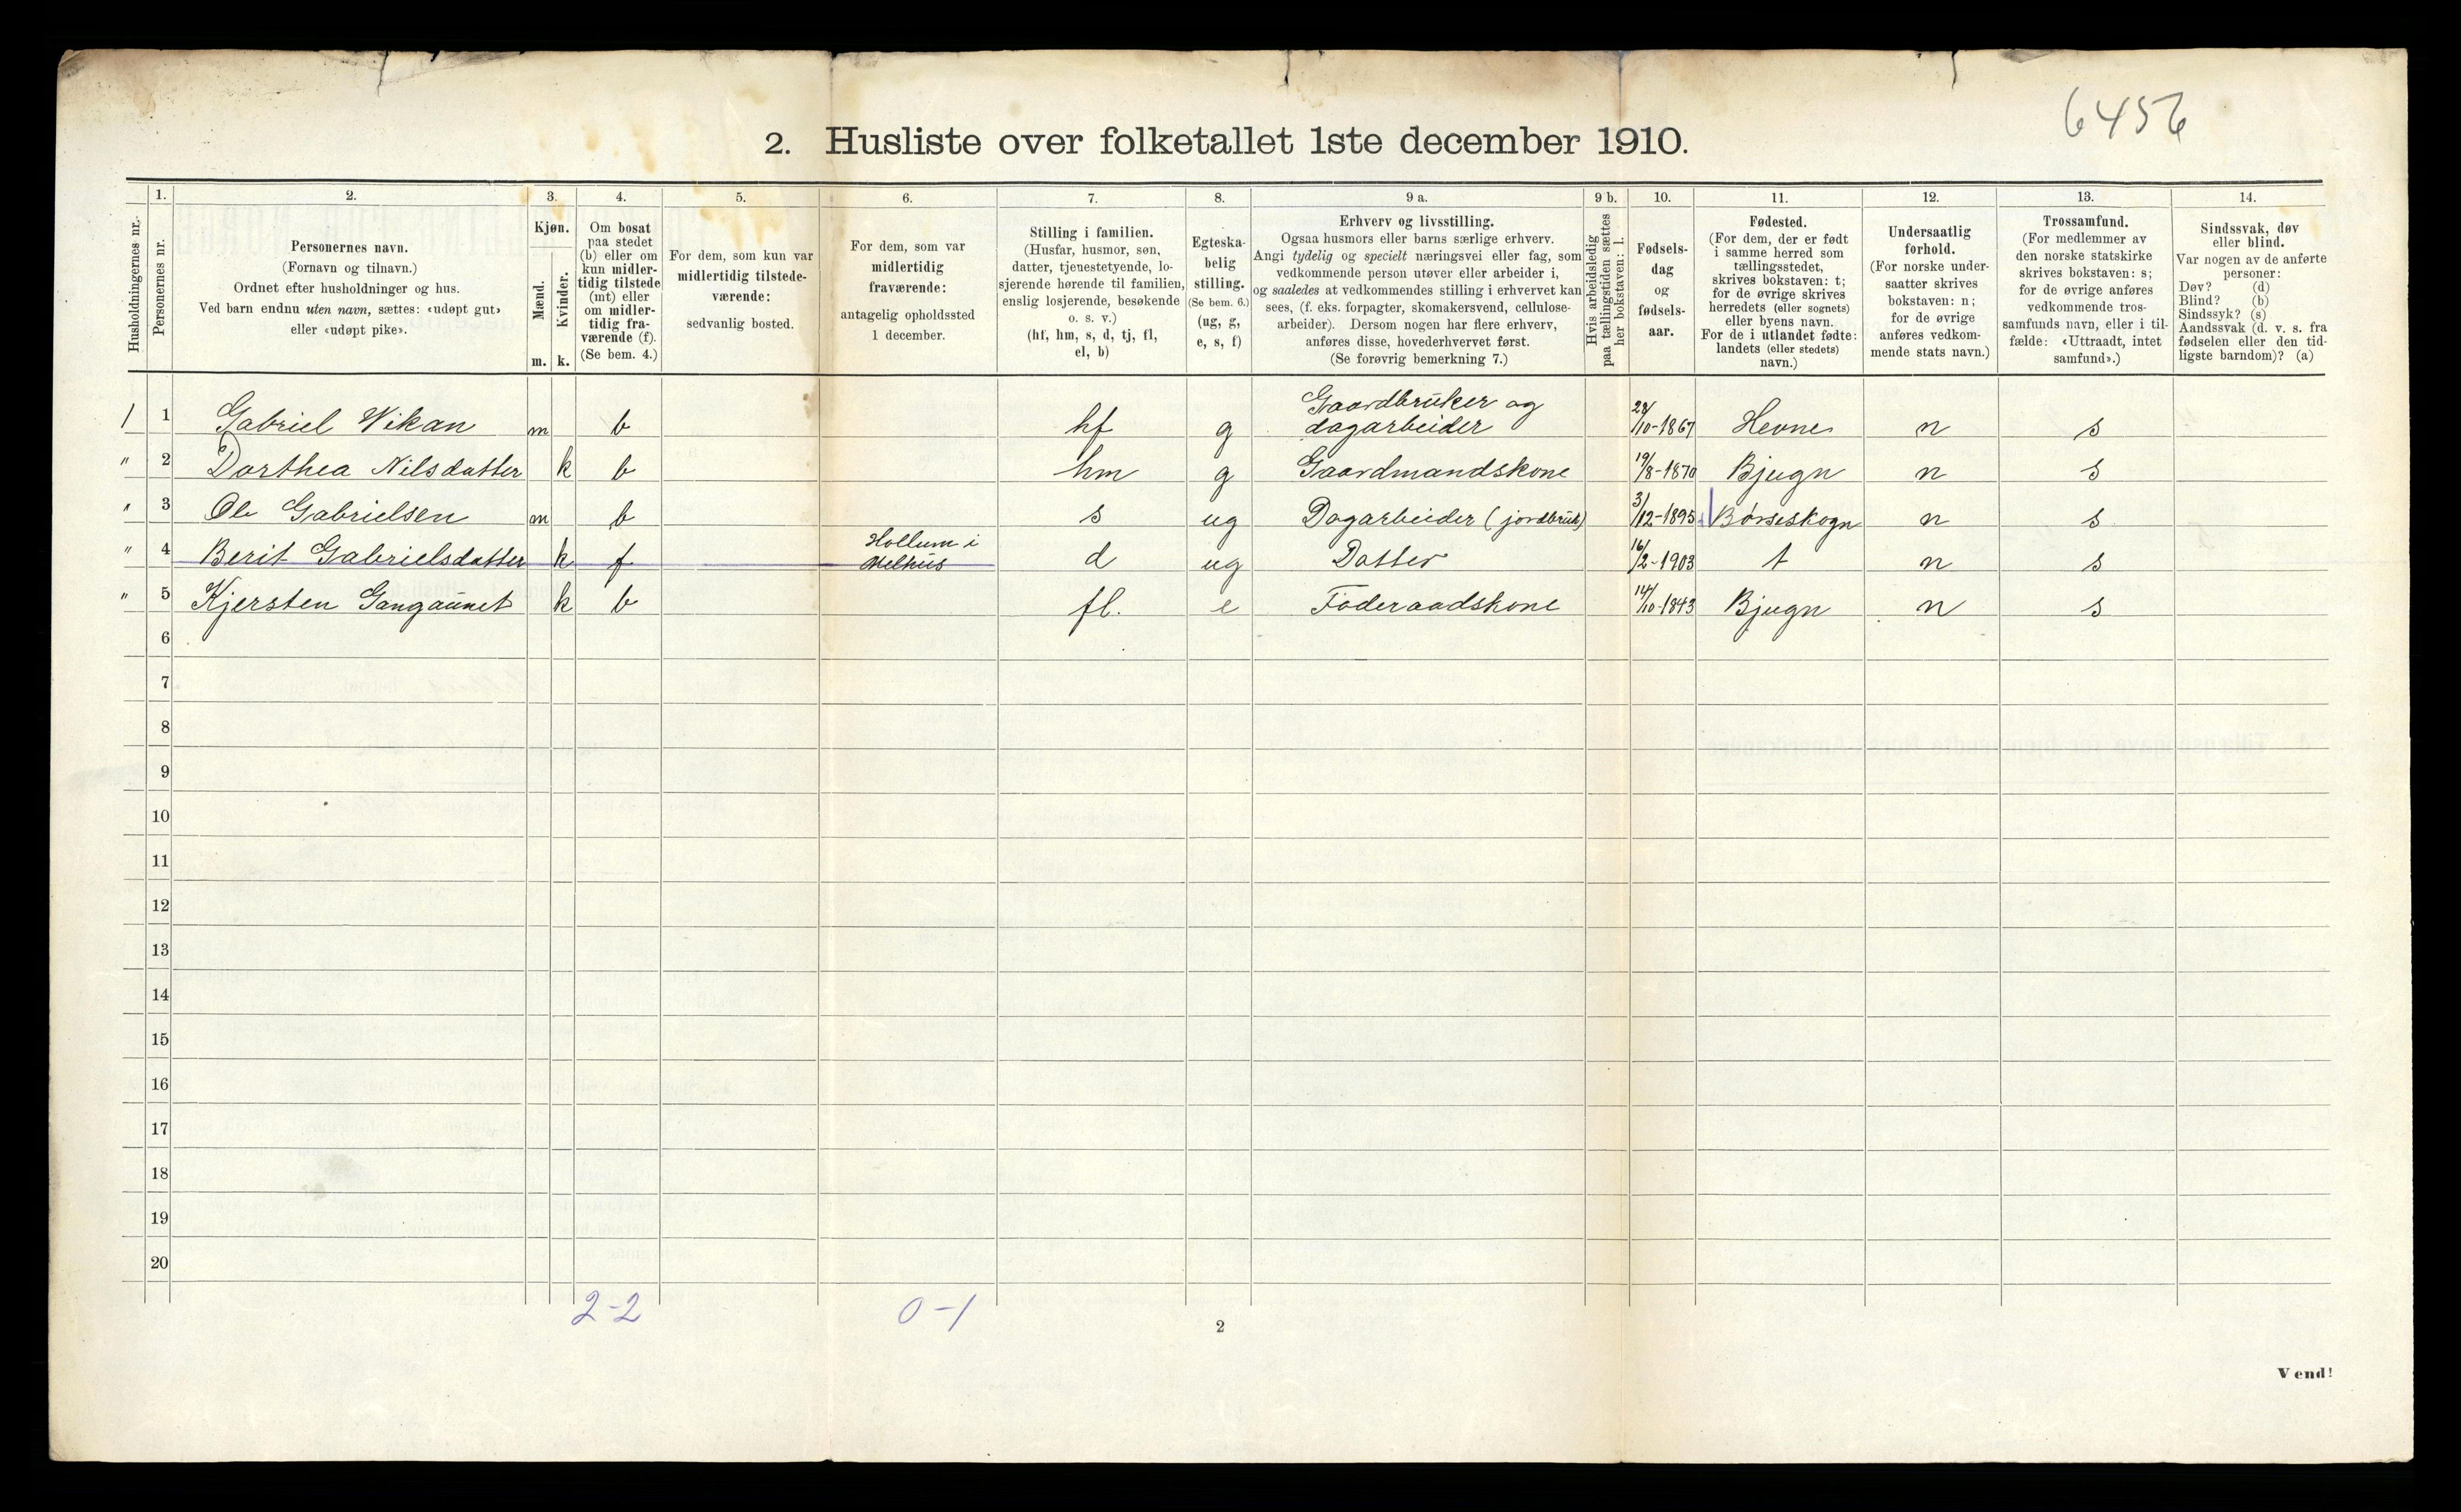 6456
2. Husliste over folketallet 1ste december 1910.
1. 2. 3. 4. 5. 6. 7. 8. 9 a. 9 b. 10. 11. 12. 13. 14.
Husholdningernes nr.
Personernes nr.
Personernes navn.
(Fornavn og tilnavn.)
Ordnet efter husholdninger og hus.
Ved barn endnu uten navn, sættes: «udøpt gut»
eller «udøpt pike».
Kjøn.
Mænd.
m.
Kvinder.
k.
Om bosat
paa stedet
(b) eller om
kun midler-
tidig tilstede
(mt) eller
om midler-
tidig fra-
værende (f).
(Se bem. 4.)
For dem, som kun var
midlertidig tilstede-
værende:
sedvanlig bosted.
For dem, som var
midlertidig
fraværende:
antagelig opholdssted
1 december.
Stilling i familien.
(Husfar, husmor, søn,
datter, tjenestetyende, lo-
sjerende hørende til familien,
enslig losjerende, besøkende
o. s. v.)
(hf, hm, s, d, tj, fl,
el, b)
Egteska-
belig
stilling.
(Se bem. 6.)
(ug, g,
e, s, f)
Erhverv og livsstilling.
Ogsaa husmors eller barns særlige erhverv.
Angi tydelig og specielt næringsvei eller fag, som
vedkommende person utøver eller arbeider i,
og saaledes at vedkommendes stilling i erhvervet kan
sees, (f. eks. forpagter, skomakersvend, cellulose-
arbeider). Dersom nogen har flere erhverv,
anføres disse, hovederhvervet først.
(Se forøvrig bemerkning 7.)
Hvis arbeidsledig
paa tællingstiden sættes
her bokstaven: l.
Fødsels-
dag
og
fødsels-
aar.
Fødested.
(For dem, der er født
i samme herred som
tællingsstedet,
skrives bokstaven: t;
for de øvrige skrives
herredets (eller sognets)
eller byens navn.
For de i utlandet fødte:
landets (eller stedets)
navn.)
Undersaatlig
forhold.
(For norske under-
saatter skrives
bokstaven: n;
for de øvrige
anføres vedkom-
mende stats navn.)
Trossamfund.
(For medlemmer av
den norske statskirke
skrives bokstaven: s;
for de øvrige anføres
vedkommende tros-
samfunds navn, eller i til-
fælde: «Uttraadt, intet
samfund».)
Sindssvak, døv
eller blind.
Var nogen av de anførte
personer:
Døv? (d)
Blind? (b)
Sindssyk? (s)
Aandssvak (d. v. s. fra
fødselen eller den tid-
ligste barndom)? (a)
1 1 Gabriel Wikan m b hf g Gaardbruker og dagarbeider 28/10-1867 Hevne n s
" 2 Dorthea Nilsdatter k b hm g Gaardmandskone 19/8-1870 Bjugn n s
" 3 Ole Gabrielsen m b s ug Dagarbeider (jordbruk) 3/12-1895 Børseskogn n s
" 4 Berit Gabrielsdatter k f Hollum i Melhus d ug Datter 16/2-1903 t n s
" 5 Kjersten Gangaunet k b fl. e Føderaadskone 14/10-1843 Bjugn n s
6
7
8
9
10
11
12
13
14
15
16
17
18
19
20
2-2 0-1
2
Vend!